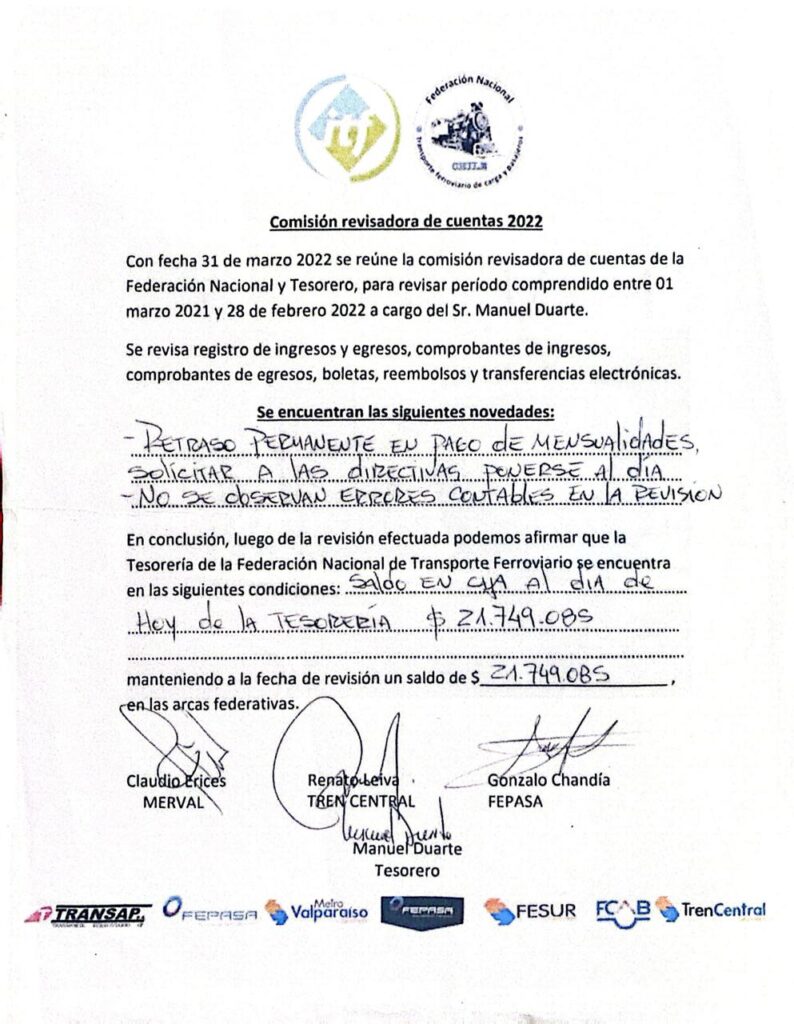 itf
Federación Nacional
CHILE
Transporte ferroviario de carga y pasajeros
Comisión revisadora de cuentas 2022
Con fecha 31 de marzo 2022 se reúne la comisión revisadora de cuentas de la
Federación Nacional y Tesorero, para revisar período comprendido entre 01
marzo 2021 y 28 de febrero 2022 a cargo del Sr. Manuel Duarte.
Se revisa registro de ingresos y egresos, comprobantes de ingresos,
comprobantes de egresos, boletas, reembolsos y transferencias electrónicas.
Se encuentran las siguientes novedades:
- RETRASO PERMANENTE EN PAGO de MENSUALIDADES,
SOLICITAR A LAS DIRECTIVAS PONERSE AL DÍA
- NO SE OBSERVAN ERRORES CONTABLES EN LA REVISIÓN
En conclusión, luego de la revisión efectuada podemos afirmar que la
Tesorería de la Federación Nacional de Transporte Ferroviario se encuentra
en las siguientes condiciones: SALDO EN CAJA AL DIA de
HOY de la TESORERÍA $ 21.749.085
manteniendo a la fecha de revisión un saldo de $ 21.749.085,
en las arcas federativas.
Claudio Erices Renato Leiva Gonzalo Chandía
MERVAL TREN CENTRAL FEPASA
Manuel Duarte
Manuel Duarte
Tesorero
TRANSAP. FEPASA Metro Valparaíso FEPASA FESUR FCAB TrenCentral